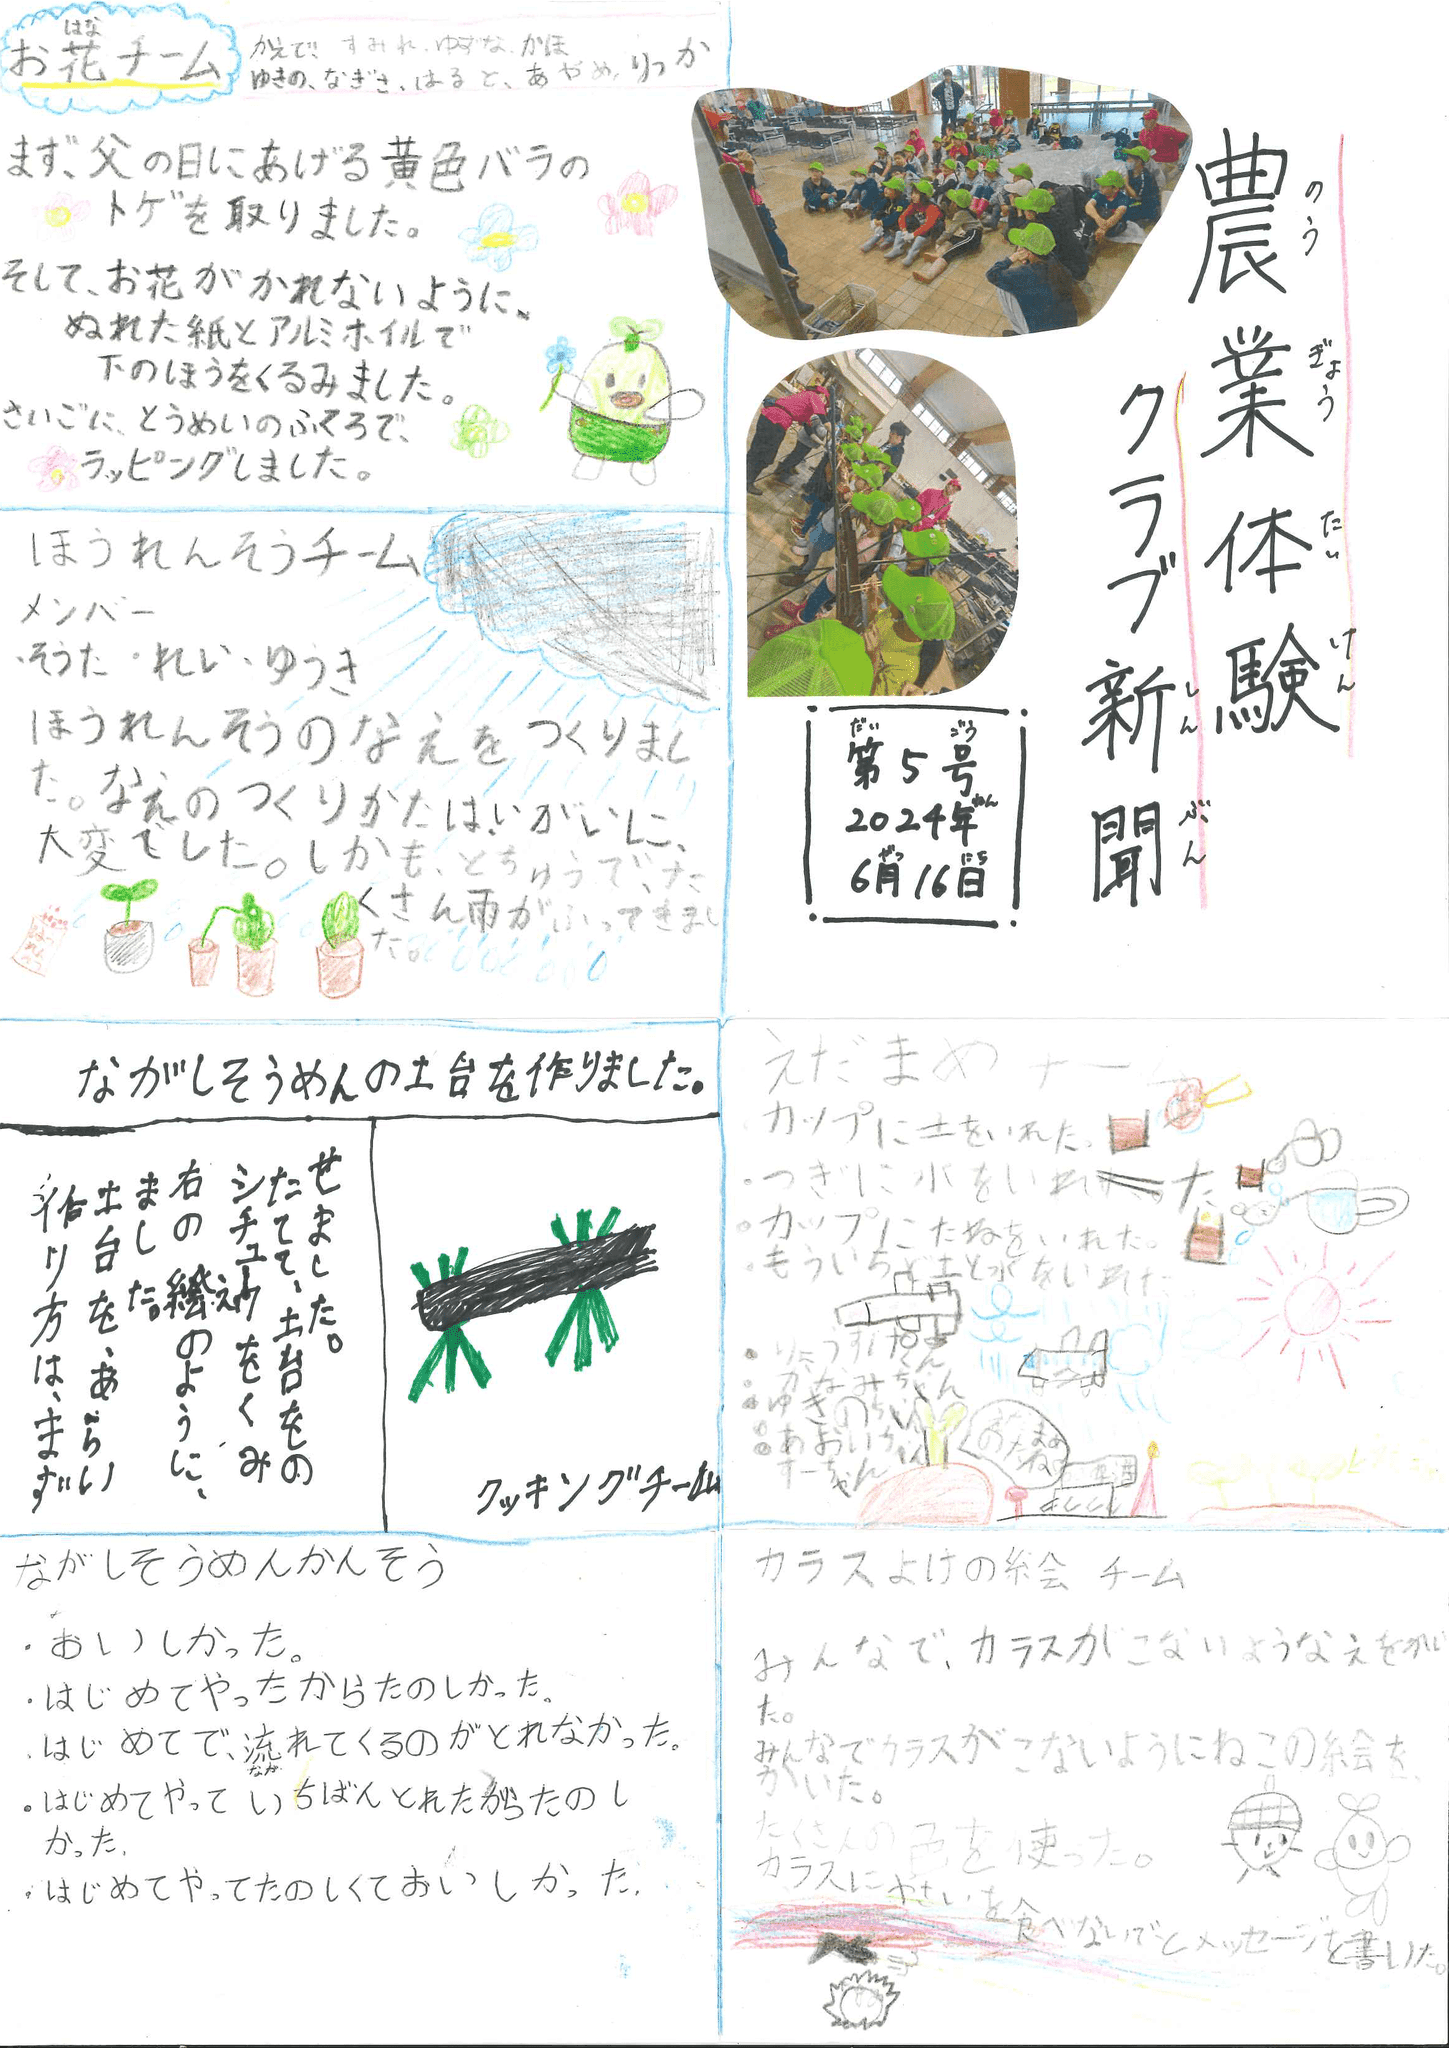 農業体験
のうぎょうたいけん
クラブ新聞
しんぶん
第5号
だい ごう
2024年
ねん
6月16日
がつ にち
お花チーム
はな
かえで、すみれ、ゆずな、かほ
ゆきの、なぎさ、はると、あやめ、りっか
まず、父の日にあげる黄色バラの
トゲを取りました。
そして、お花がかれないように、
ぬれた紙とアルミホイルで
下のほうをくるみました。
さいごに、とうめいのふくろで、
ラッピングしました。
ほうれんそうチーム
メンバー
・そうた・れい・ゆうき
ほうれんそうのなえをつくりまし
た。なえのつくりかたは、いがいに、
大変でした。しかも、とちゅうで、た
くさん雨がふってきまし
た。
ながしそうめんの土台を作りました。
作り方は、まず
土台を、あらい
ました。
右の絵のように、
え
シチュウをくみ
たてて、土台をの
せました。
クッキングチーム
えだまめチーム
・カップに土をいれた。
・つぎに水をいれた
・カップにたねをいれた。
・もういちど土と水をいれた
・かなみちゃん
・ゆきのちゃん
・あおいくん
・すーちゃん
ながしそうめんかんそう
・おいしかった。
・はじめてやったからたのしかった。
・はじめてで、流れてくるのがとれなかった。
なが
・はじめてやっていちばんとれたからたのし
かった。
・はじめてやってたのしくておいしかった。
カラスよけの絵 チーム
みんなで、カラスがこないようなえをかい
た。
みんなでカラスがこないようにねこの絵を、
かいた。
たくさんの色を使った。
カラスにやさいを食べないでとメッセージを書いた。